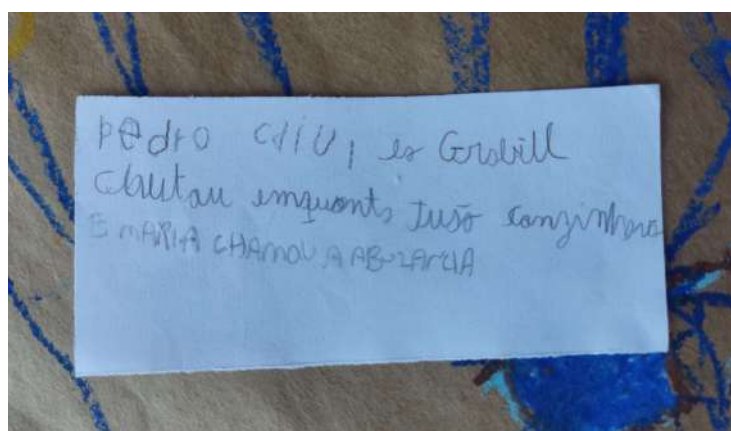 Pedro CAIU, es Grabill
Chutau emquanto Jusó canzinhava
E MARIA CHAMOU A ABULANCIA